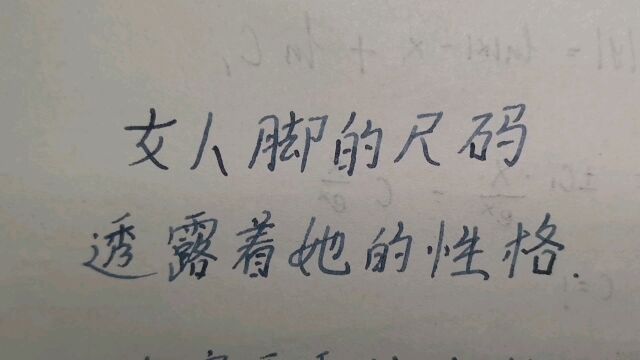 女人脚的尺码
透露着她的性格.